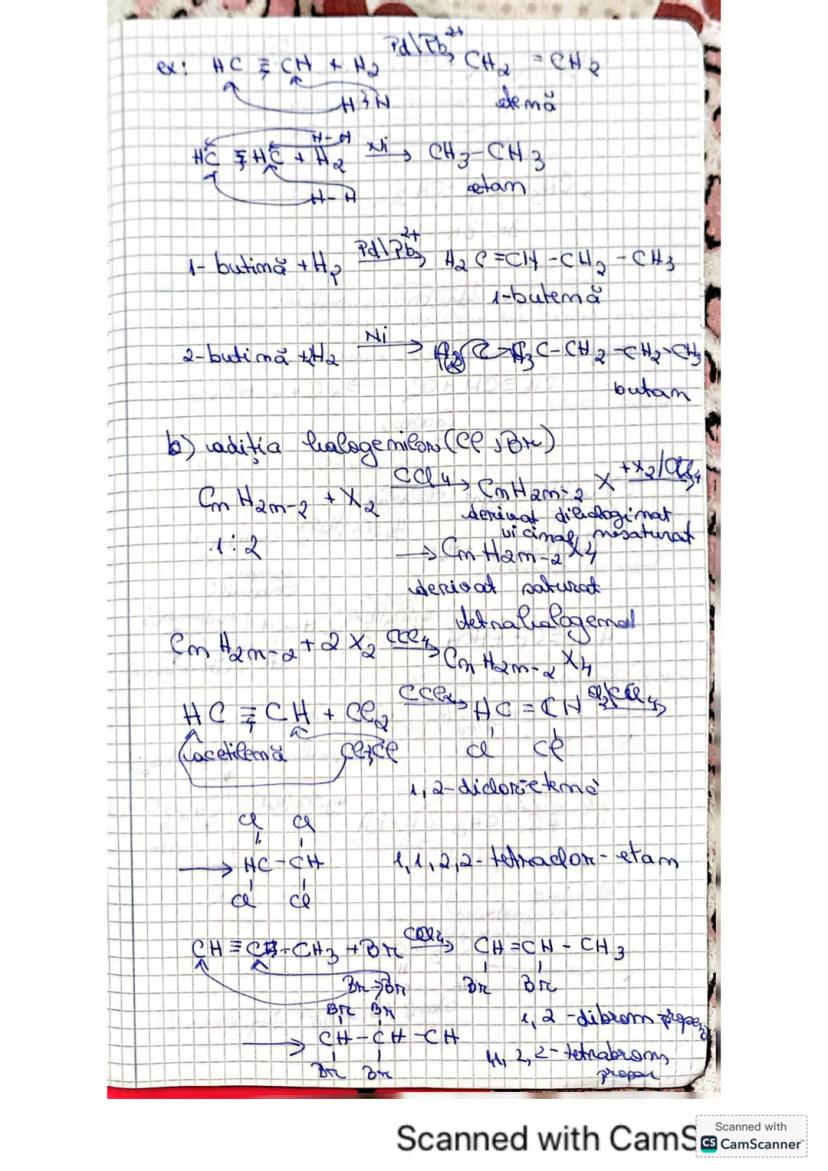 ex: HC ≡ CH + H2 Pd/Pb2+ → CH2 = CH2
H H
HC ≡ HC + H2 Ni → CH3-CH3
H-H
H-H
etan
1-butină + H2 Pd/Pb2+ → H2C=CH-CH2-CH3
1-butenă
2-butină + 2H2 Ni → H3C-CH2-CH2-CH3
butan
b) adiția halogenilor (Cl, Br)
CnH2n-2 + X2 CCl4 → CnH2n-2 X +X2/CCl4 →
derivat dihaloginat
vicinal nesaturat
1:2 → CnH2n-2X4
derivat saturat
tetrahalogenat
CnH2n-2 + 2X2 CCl4 → CnH2n-2X4
HC ≡ CH + Cl2 → HC = CH →
acetilenă Cl Cl Cl Cl
1,2-dicloretenă
Cl Cl
→ HC-CH 1,1,2,2-tetraclor-etan
Cl Cl
CH ≡ CH-CH3 + Br CCl4 → CH=CH-CH3
Br Br Br Br
Br Br 1,2-dibrom
→ CH-CH-CH 1,1,2,2-tetrabrom
Br Br propan
Scanned with CamS
Scanned with
CS CamScanner